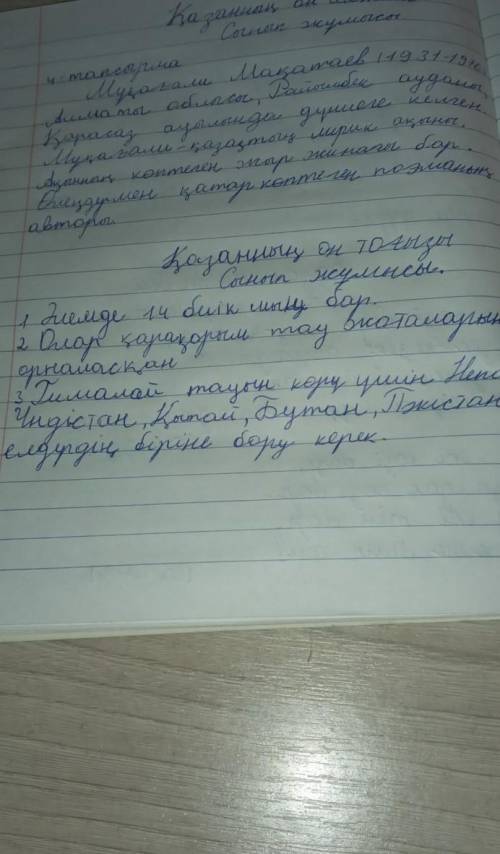 Қазанның он
Сынып жұмысы
4-тапсырма
Мұқағали Мақатаев (1931-
Алматы облысы, Райымбек ауданы,
Қарасаз ауылында дүниеге келген.
Мұқағали-қазақтың лирик ақыны.
Ақынның көптеген жыр жинағы бар.
Өлеңдермен қатар көптеген поэманың
авторы.
Қазанның он тоғызы
Сынып жұмысы.
1 Әлемде 14 биік шың бар.
2 Олар қарақорым тау жоталарын
орналасқан
3 Гималай тауын көру үшін Непа
Үндістан, Қытай, Бутан, Пәкістан
елдердің біріне бару керек.